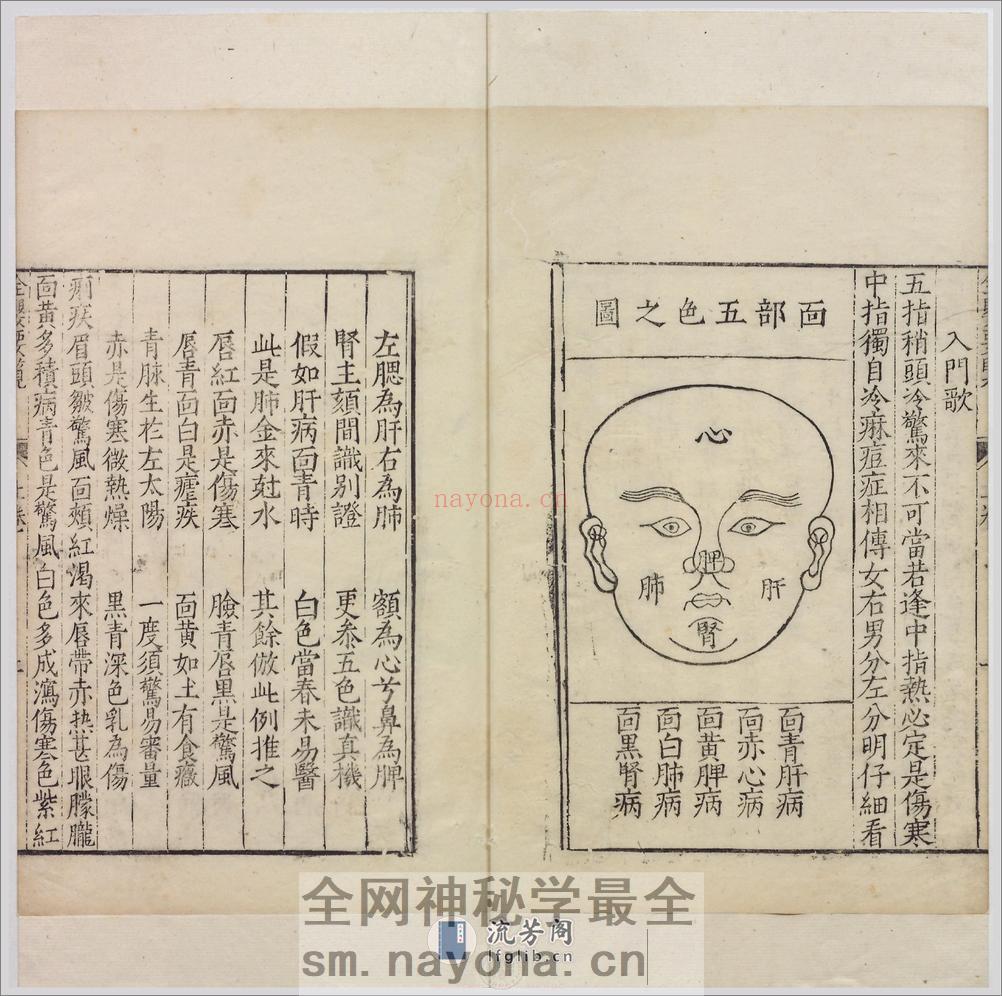 入門歌
五指稍頭冷驚來不可當若逢中指熱必定是傷寒
中指獨自冷痳痘症相傳女右男分左分明仔細看
面部五色之圖
心
肺 脾 肝
腎
面青肝病
面赤心病
面黃脾病
面白肺病
面黑腎病
左腮為肝右為肺 額為心兮鼻為脾
腎主頦間識別證 更叅五色識真機
假如肝病面青時 白色當春未易醫
此是肺金來尅水 其餘倣此例推之
唇紅面赤是傷寒 臉青唇黑是驚風
唇青面白是瘧疾 面黃如土有食癥
青脉生於左太陽 一度須驚易審量
赤是傷寒微熱燥 黑青深色乳為傷
痢疾眉頭皺驚風面頰紅渴來唇帶赤热甚眼朦朧
面黃多積病青色是驚風白色多成瀉傷寒色紫紅
nayona.cn
全网神秘学最全
流芳阁
lfglib.cn
sm.nayona.cn